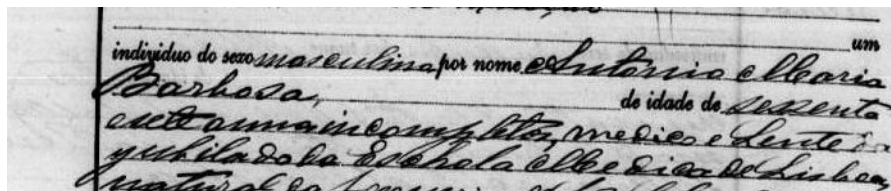 um
individuo do sexo masculino por nome Antonio Maria
Barbosa, de idade de sessenta
e sete annos incompletos, medico e Lente
jubilado da Eschola Medica de Lisboa
natural da